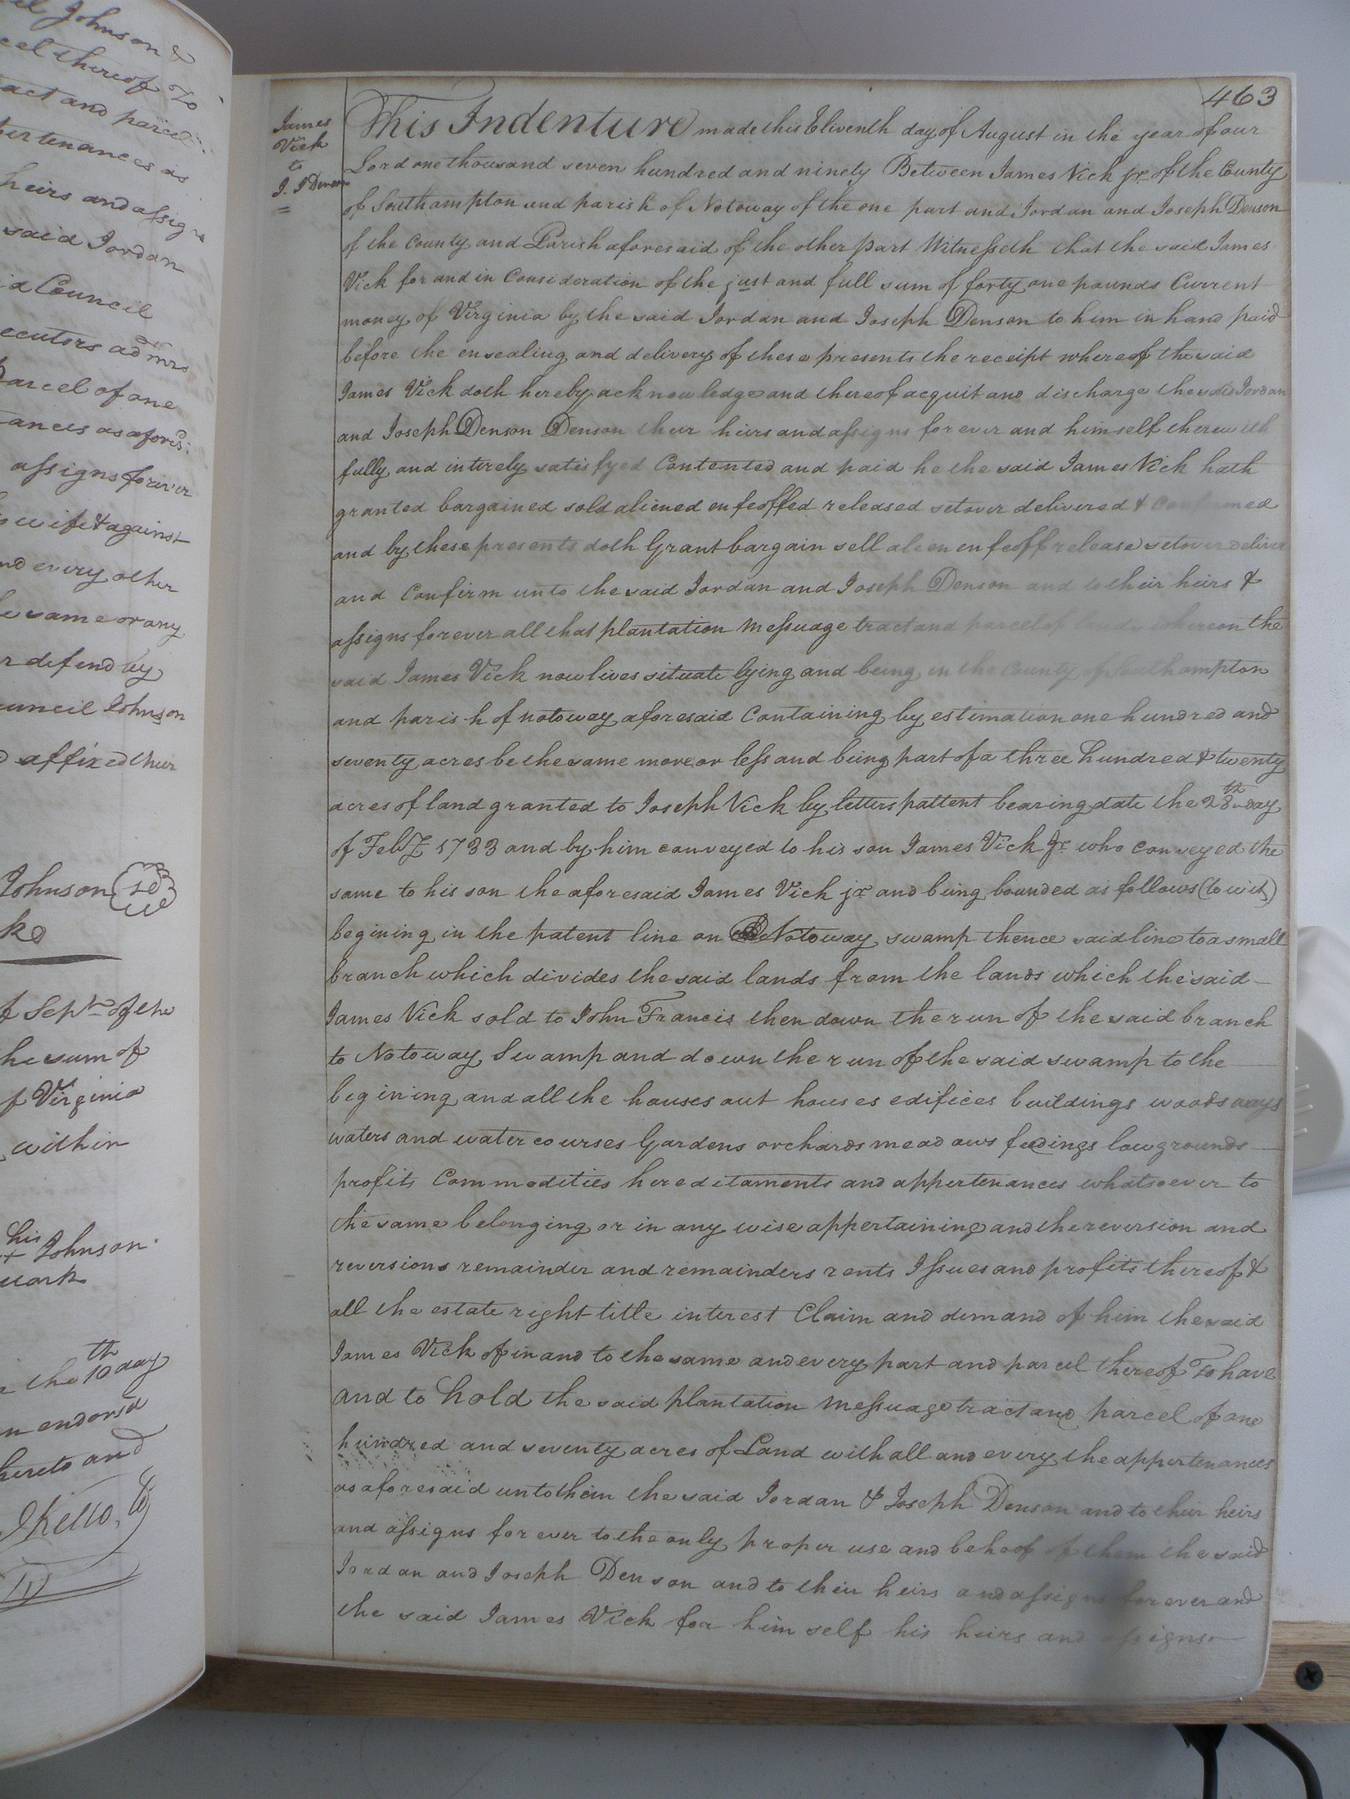 el Johnson &
cel thereof To
act and parcel
pertenances as
heirs and assigns
said Jordan
d Council
ecutors admrs
parcel of one
tances as aforsd:
assigns forever
wife & against
nd every other
he same or any
r defend by
uncil Johnson
affixed their
Johnson
ke
of Septr of the
the sum of
of Virginia
within
his
+ Johnson
mark
the 10th day
n endorsd
hereto and
J Kello,
463
James
Vick
to
J. J Denson
This Indenture made this Eleventh day of August in the year of our
Lord one thousand seven hundred and ninety Between James Vick jr. of the County
of Southampton and parish of Notoway of the one part and Jordan and Joseph Denson
of the County and Parish aforesaid of the other part Witnesseth that the said James
Vick for and in Consideration of the just and full sum of forty one pounds Current
money of Virginia by the said Jordan and Joseph Denson to him in hand paid
before the ensealing and delivery of these presents the receipt whereof the said
James Vick doth hereby acknowledge and thereof acquit and discharge the said Jordan
and Joseph Denson Denson their heirs and assigns forever and himself therewith
fully and intirely satisfyed Contented and paid he the said James Vick hath
granted bargained sold aliened enfeoffed released setover delivered & Confirmed
and by these presents doth Grant bargain sell aleen enfeoff release setover deliver
and Confirm unto the said Jordan and Joseph Denson and to their heirs &
assigns forever all that plantation messuage tract and parcel of land whereon the
said James Vick now lives situate lying and being in the County of Southampton
and parish of notoway aforesaid Containing by estimation one hundred and
seventy acres be the same more or less and being part of a three hundred & twenty
acres of land granted to Joseph Vick by letters pattent bearing date the 28th day
of Feby 1733 and by him conveyed to his son James Vick Jr who conveyed the
same to his son the aforesaid James Vick jr and being bounded as follows (to wit)
begining in the patent line on Notoway swamp thence said line to a small
branch which divides the said lands from the lands which the said
James Vick sold to John Francis then down the run of the said branch
to Notoway Swamp and down the run of the said swamp to the
begining and all the houses out houses edifices buildings woods ways
waters and water courses Gardens orchards meadows feedings lowgrounds
profits Commodities hereditaments and appertenances whatsoever to
the same belonging or in any wise appertaining and the reversion and
reversions remainder and remainders rents Issues and profits thereof &
all the estate right title interest Claim and demand of him the said
James Vick of in and to the same and every part and parcel thereof To have
and to hold the said plantation messuage tract and parcel of one
hundred and seventy acres of Land with all and every the appertenances
as aforesaid unto them the said Jordan & Joseph Denson and to their heirs
and assigns for ever to the only proper use and behoof of them the said
Jordan and Joseph Denson and to their heirs and assigns forever and
the said James Vick for himself his heirs and assigns